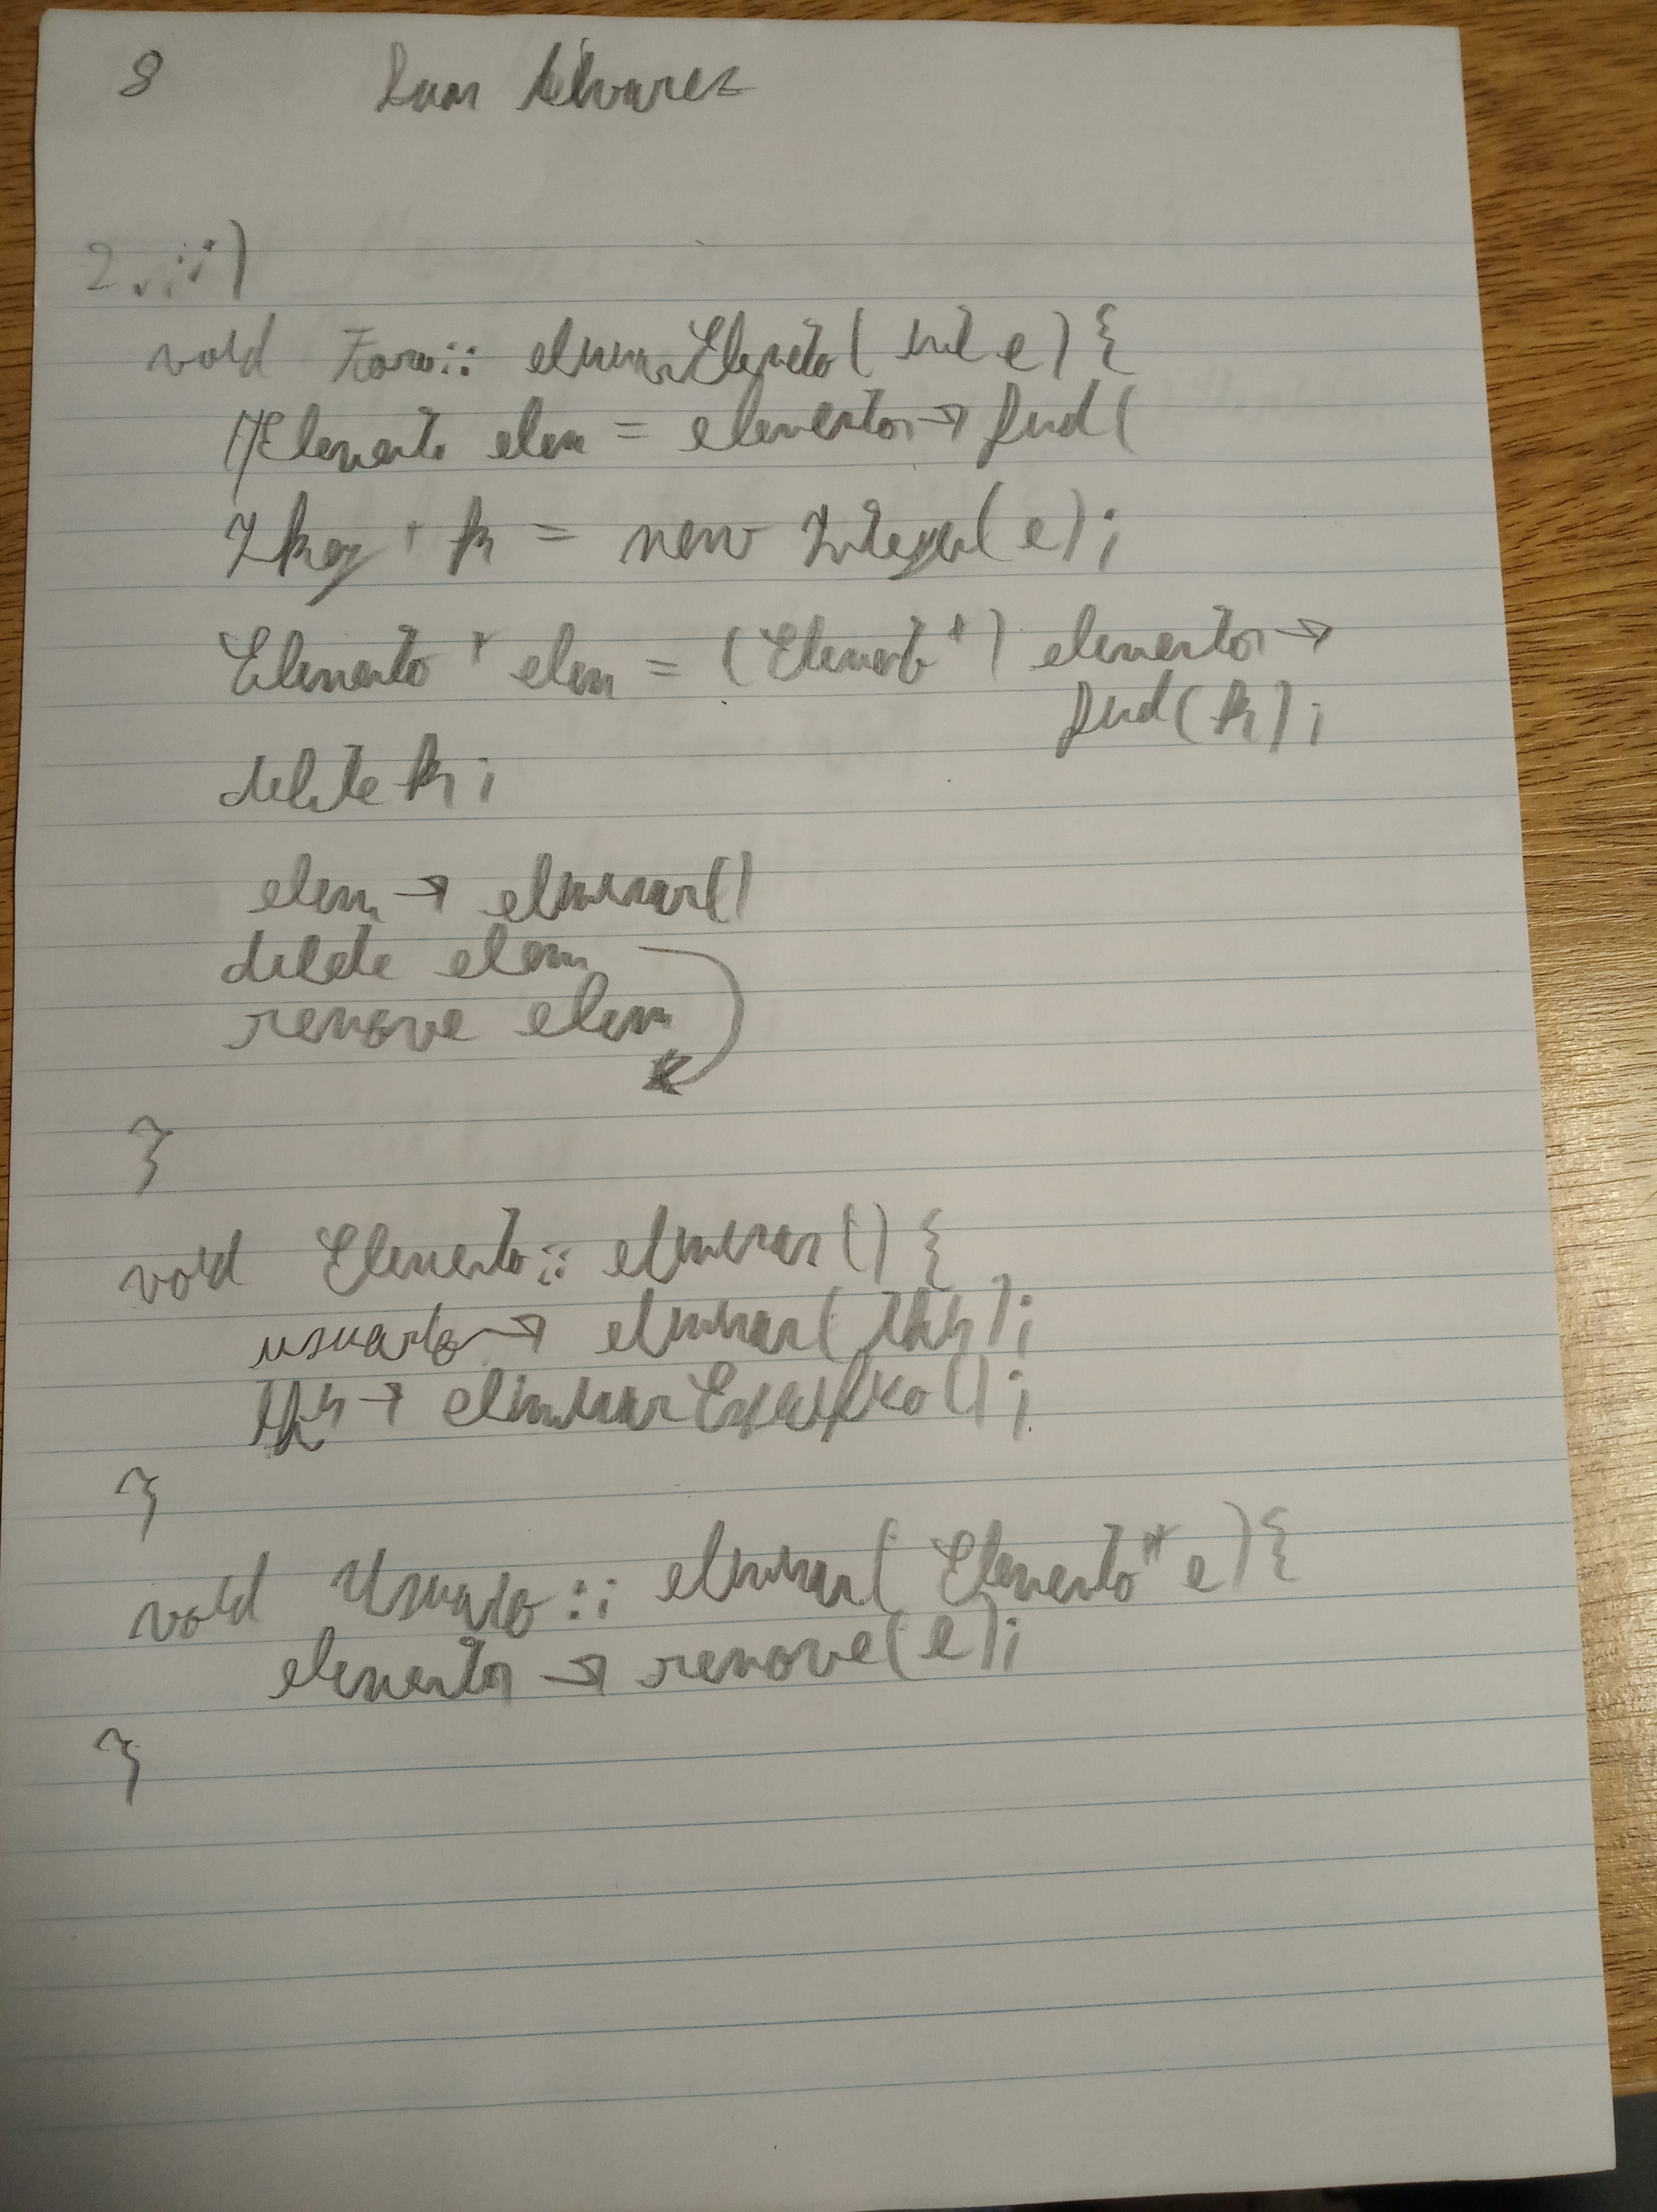 8 Juan Alvarez
2.ii)
void Foro:: eliminarElemento( int e) {
//Elemento elem = elementos → find(
IKey * k = new Integer(e);
Elemento * elem = (Elemento*) elementos →
find(k);
delete k;
elem → eliminar()
delete elem
remove elem
}
void Elemento:: eliminar() {
usuario → eliminar( this );
this → eliminarEspecifico();
}
void Usuario:: eliminar( Elemento* e) {
elementos → remove(e);
}